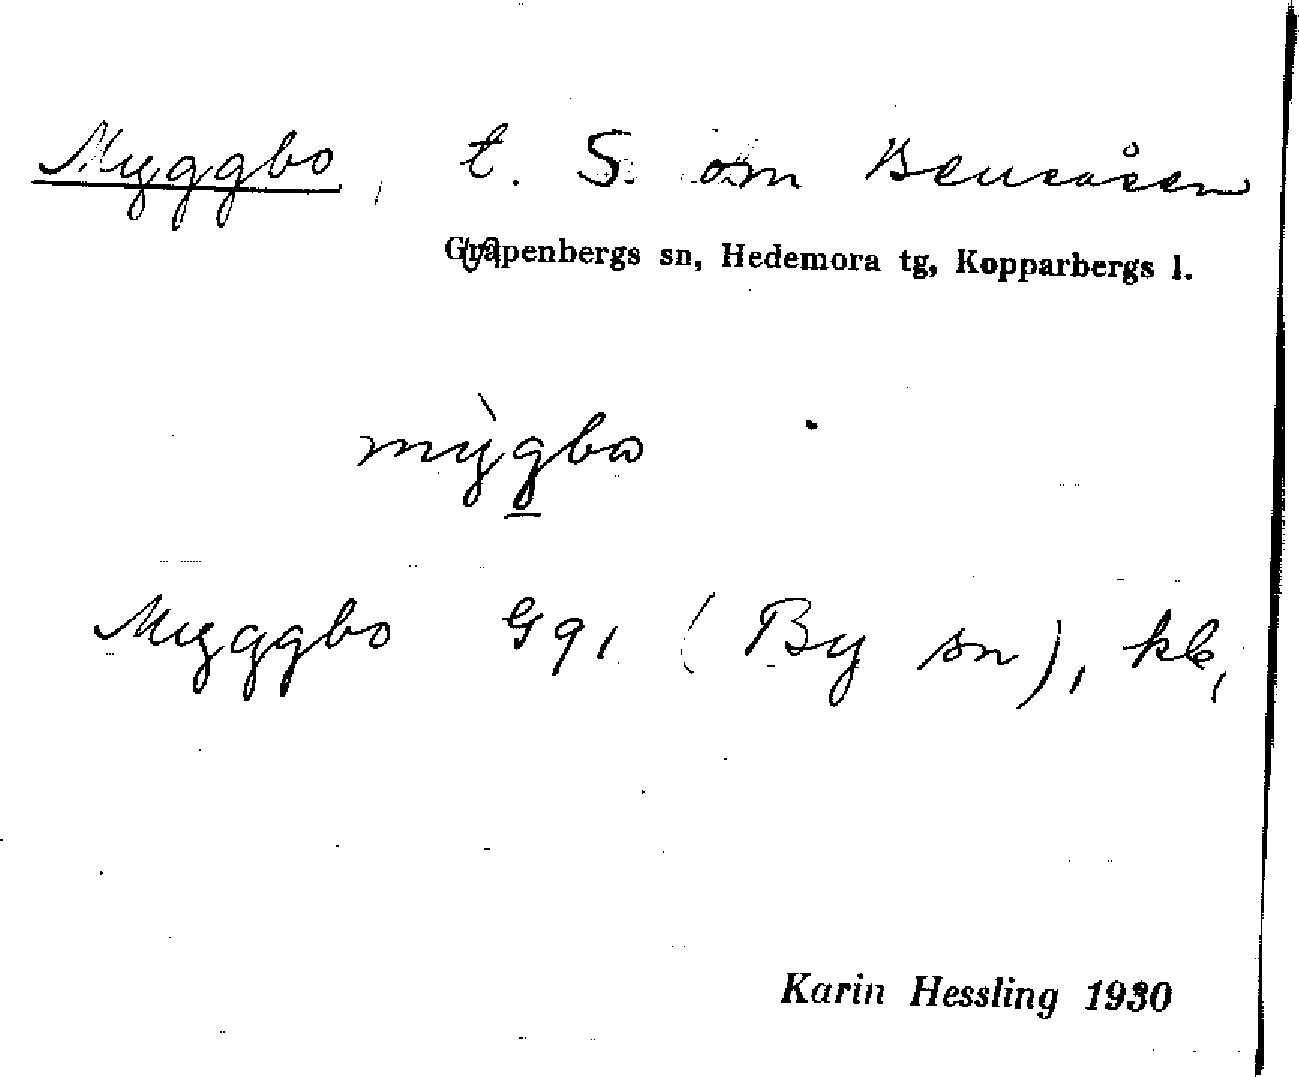 Myggbo, t. S. om Bensåsen
Grapenbergs sn, Hedemora tg, Kopparbergs l.
mỳgbo
Myggbo G 91 (By sn), kb,
Karin Hessling 1930